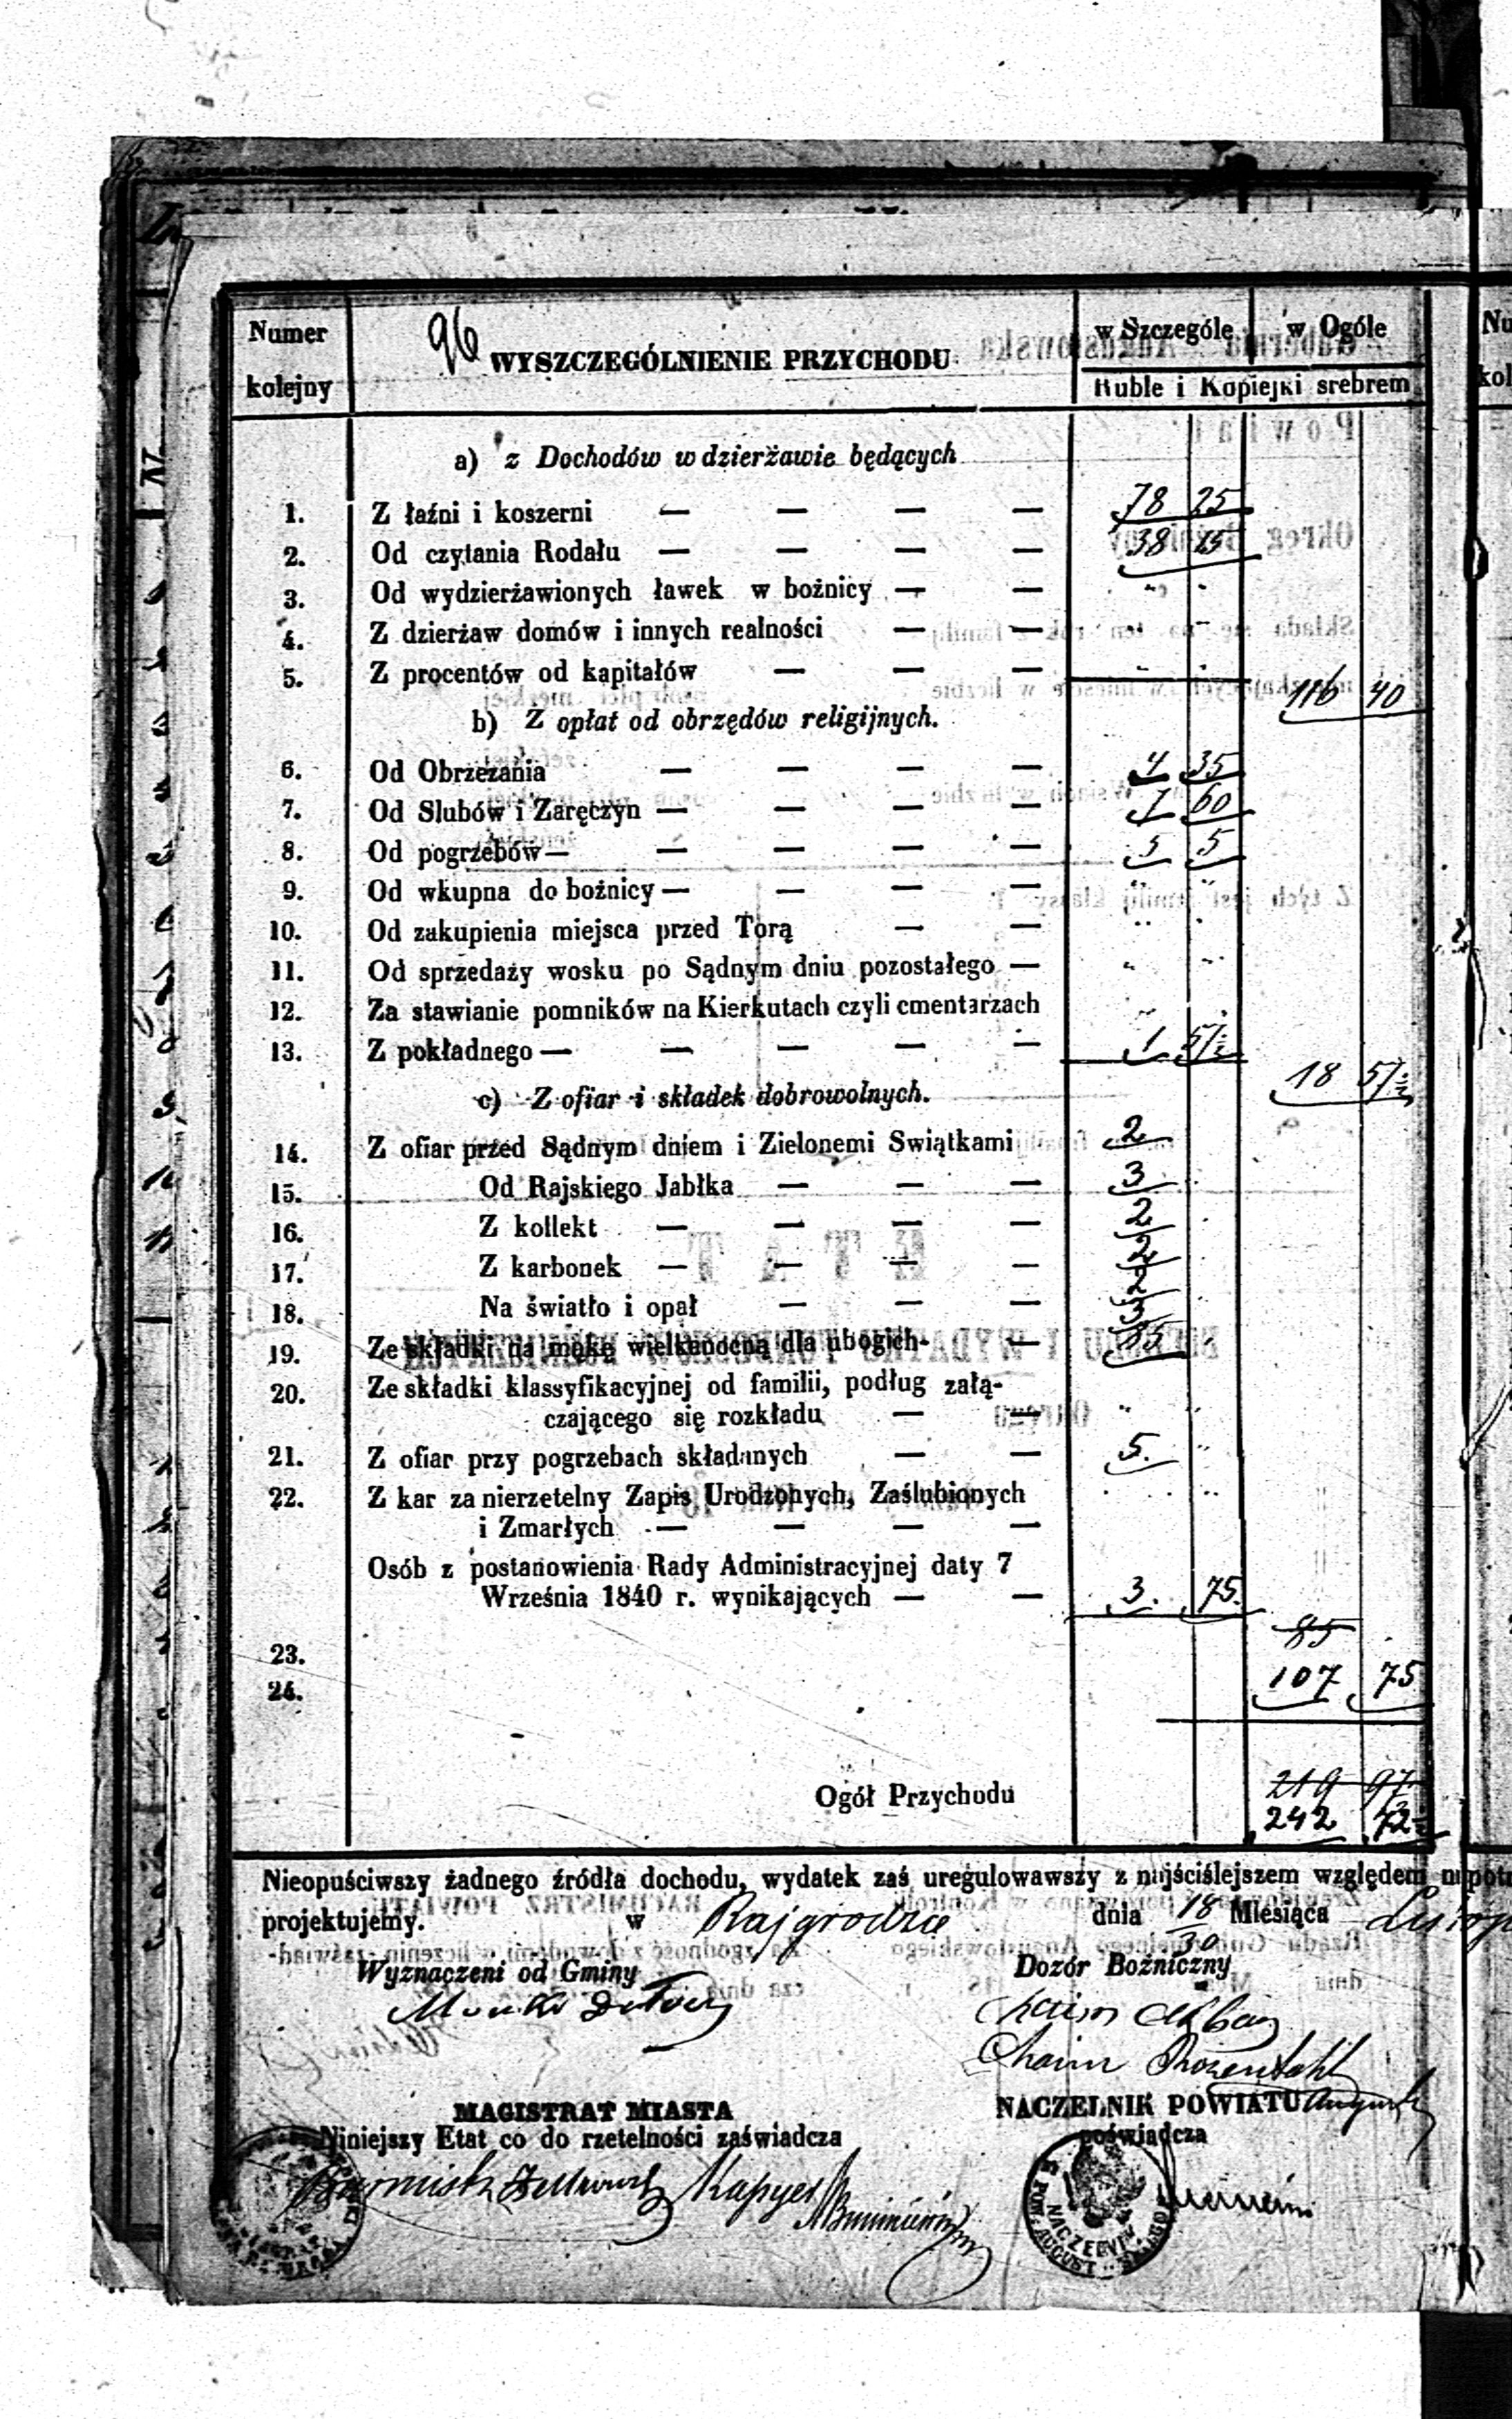 96
Numer kolejny WYSZCZEGÓLNIENIE PRZYCHODU w Szczególe w Ogóle
Ruble i Kopiejki srebrem
a) z Dochodów w dzierżawie będących
1. Z łaźni i koszerni — — — — 78 25
2. Od czytania Rodału — — — — 38 15
3. Od wydzierżawionych ławek w bożnicy — —
4. Z dzierżaw domów i innych realności — —
5. Z procentów od kapitałów — — —
116 40
b) Z opłat od obrzędów religijnych.
6. Od Obrzezania — — — — 4 35
7. Od Slubów i Zaręczyn — — — — 7 60
8. Od pogrzebów — — — — — 5 5
9. Od wkupna do bożnicy — — — —
10. Od zakupienia miejsca przed Torą — —
11. Od sprzedaży wosku po Sądnym dniu pozostałego —
12. Za stawianie pomników na Kierkutach czyli cmentarzach
13. Z pokładnego — — — — — 1 57½
18 57½
c) Z ofiar i składek dobrowolnych.
14. Z ofiar przed Sądnym dniem i Zielonemi Swiątkami 2
15. Od Rajskiego Jabłka — — — 3
16. Z kollekt — — — — 2
17. Z karbonek — — — —
18. Na światło i opał — — —
19. Ze składki na mąkę wielkanocną dla ubogich — —
20. Ze składki klassyfikacyjnej od familii, podług załą-
czającego się rozkładu — —
21. Z ofiar przy pogrzebach składanych — — 5.
22. Z kar za nierzetelny Zapis Urodzonych, Zaślubionych
i Zmarłych — — — —
Osób z postanowienia Rady Administracyjnej daty 7
Września 1840 r. wynikających — — 3. 75.
85
23.
107 75
24.
219 97
Ogół Przychodu
242 72½
Nieopuściwszy żadnego źródła dochodu, wydatek zaś uregulowawszy z najściślejszem względem na potr
projektujemy. w Rajgrodzie dnia 18/30 Miesiąca
Wyznaczeni od Gminy Dozór Bożniczny
Chaim Rozentahl
MAGISTRAT MIASTA NACZELNIK POWIATU
Niniejszy Etat co do rzetelności zaświadcza poświadcza
NACZELNIK